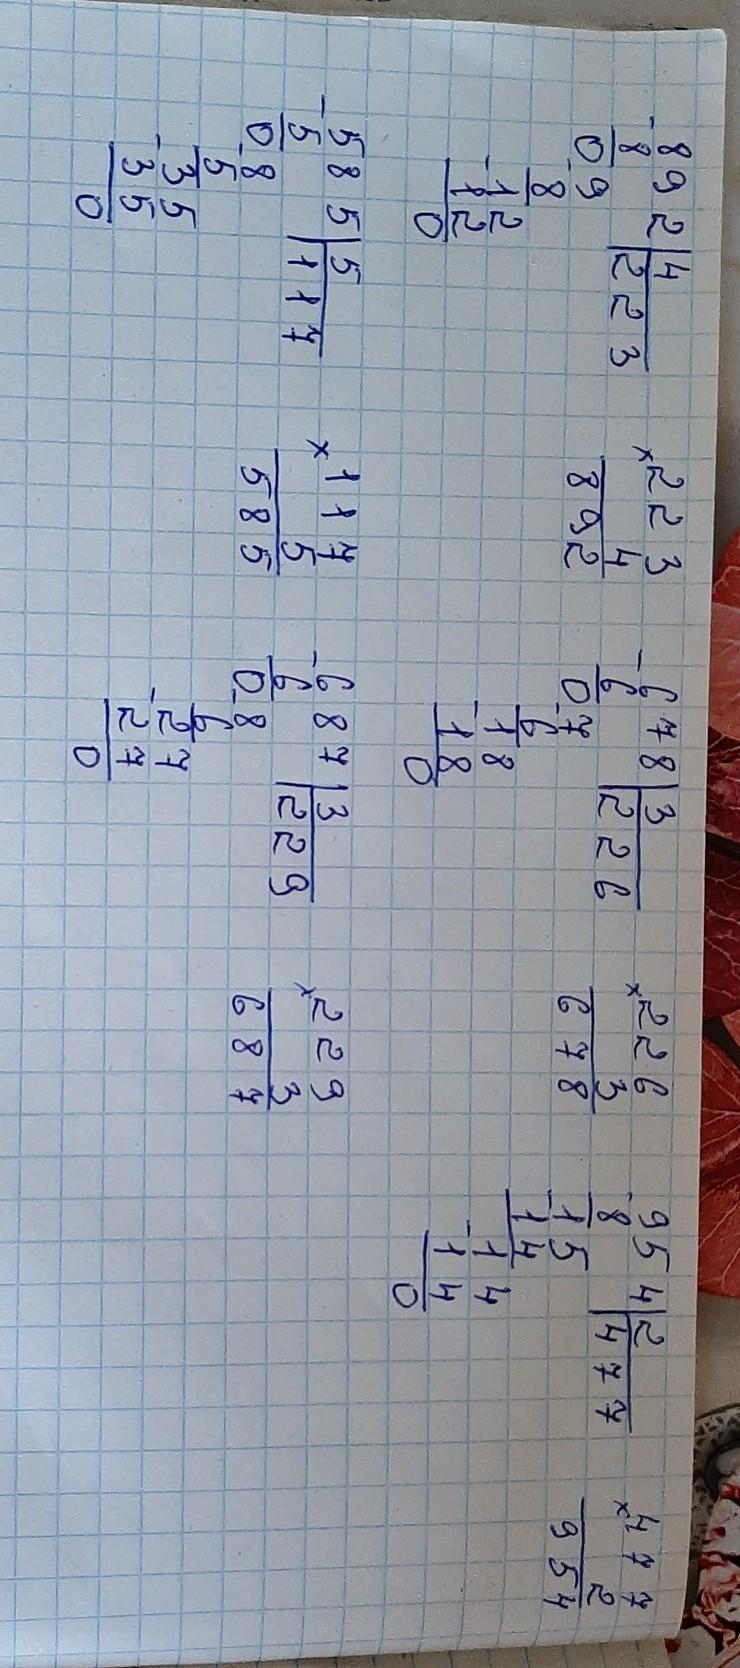 -892|4
8|223
0-9
8
-12
12
0
×223
4
892
-678|3
6|226
0-7
6
-18
18
0
×226
3
678
-954|2
8|477
-15
14
-14
14
0
×477
2
954
-585|5
5|117
0-8
5
-35
35
0
×117
5
585
-687|3
6|229
0-8
6
-27
27
0
×229
3
687